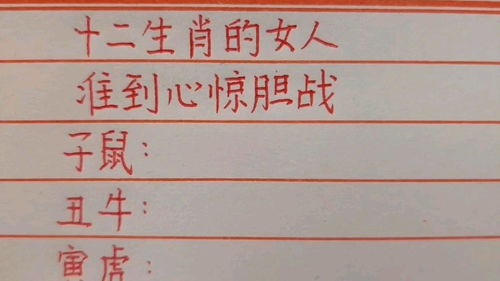 十二生肖的女人
准到心惊胆战
子鼠：
丑牛：
寅虎：